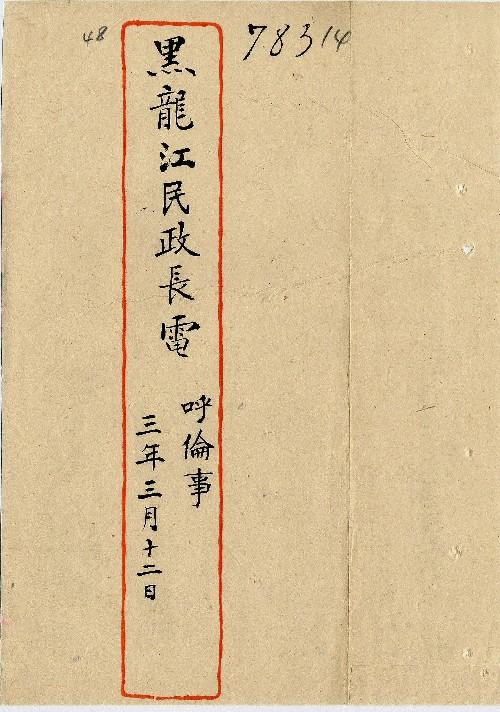 48
78314
黑龍江民政長電
呼倫事
三年三月十二日